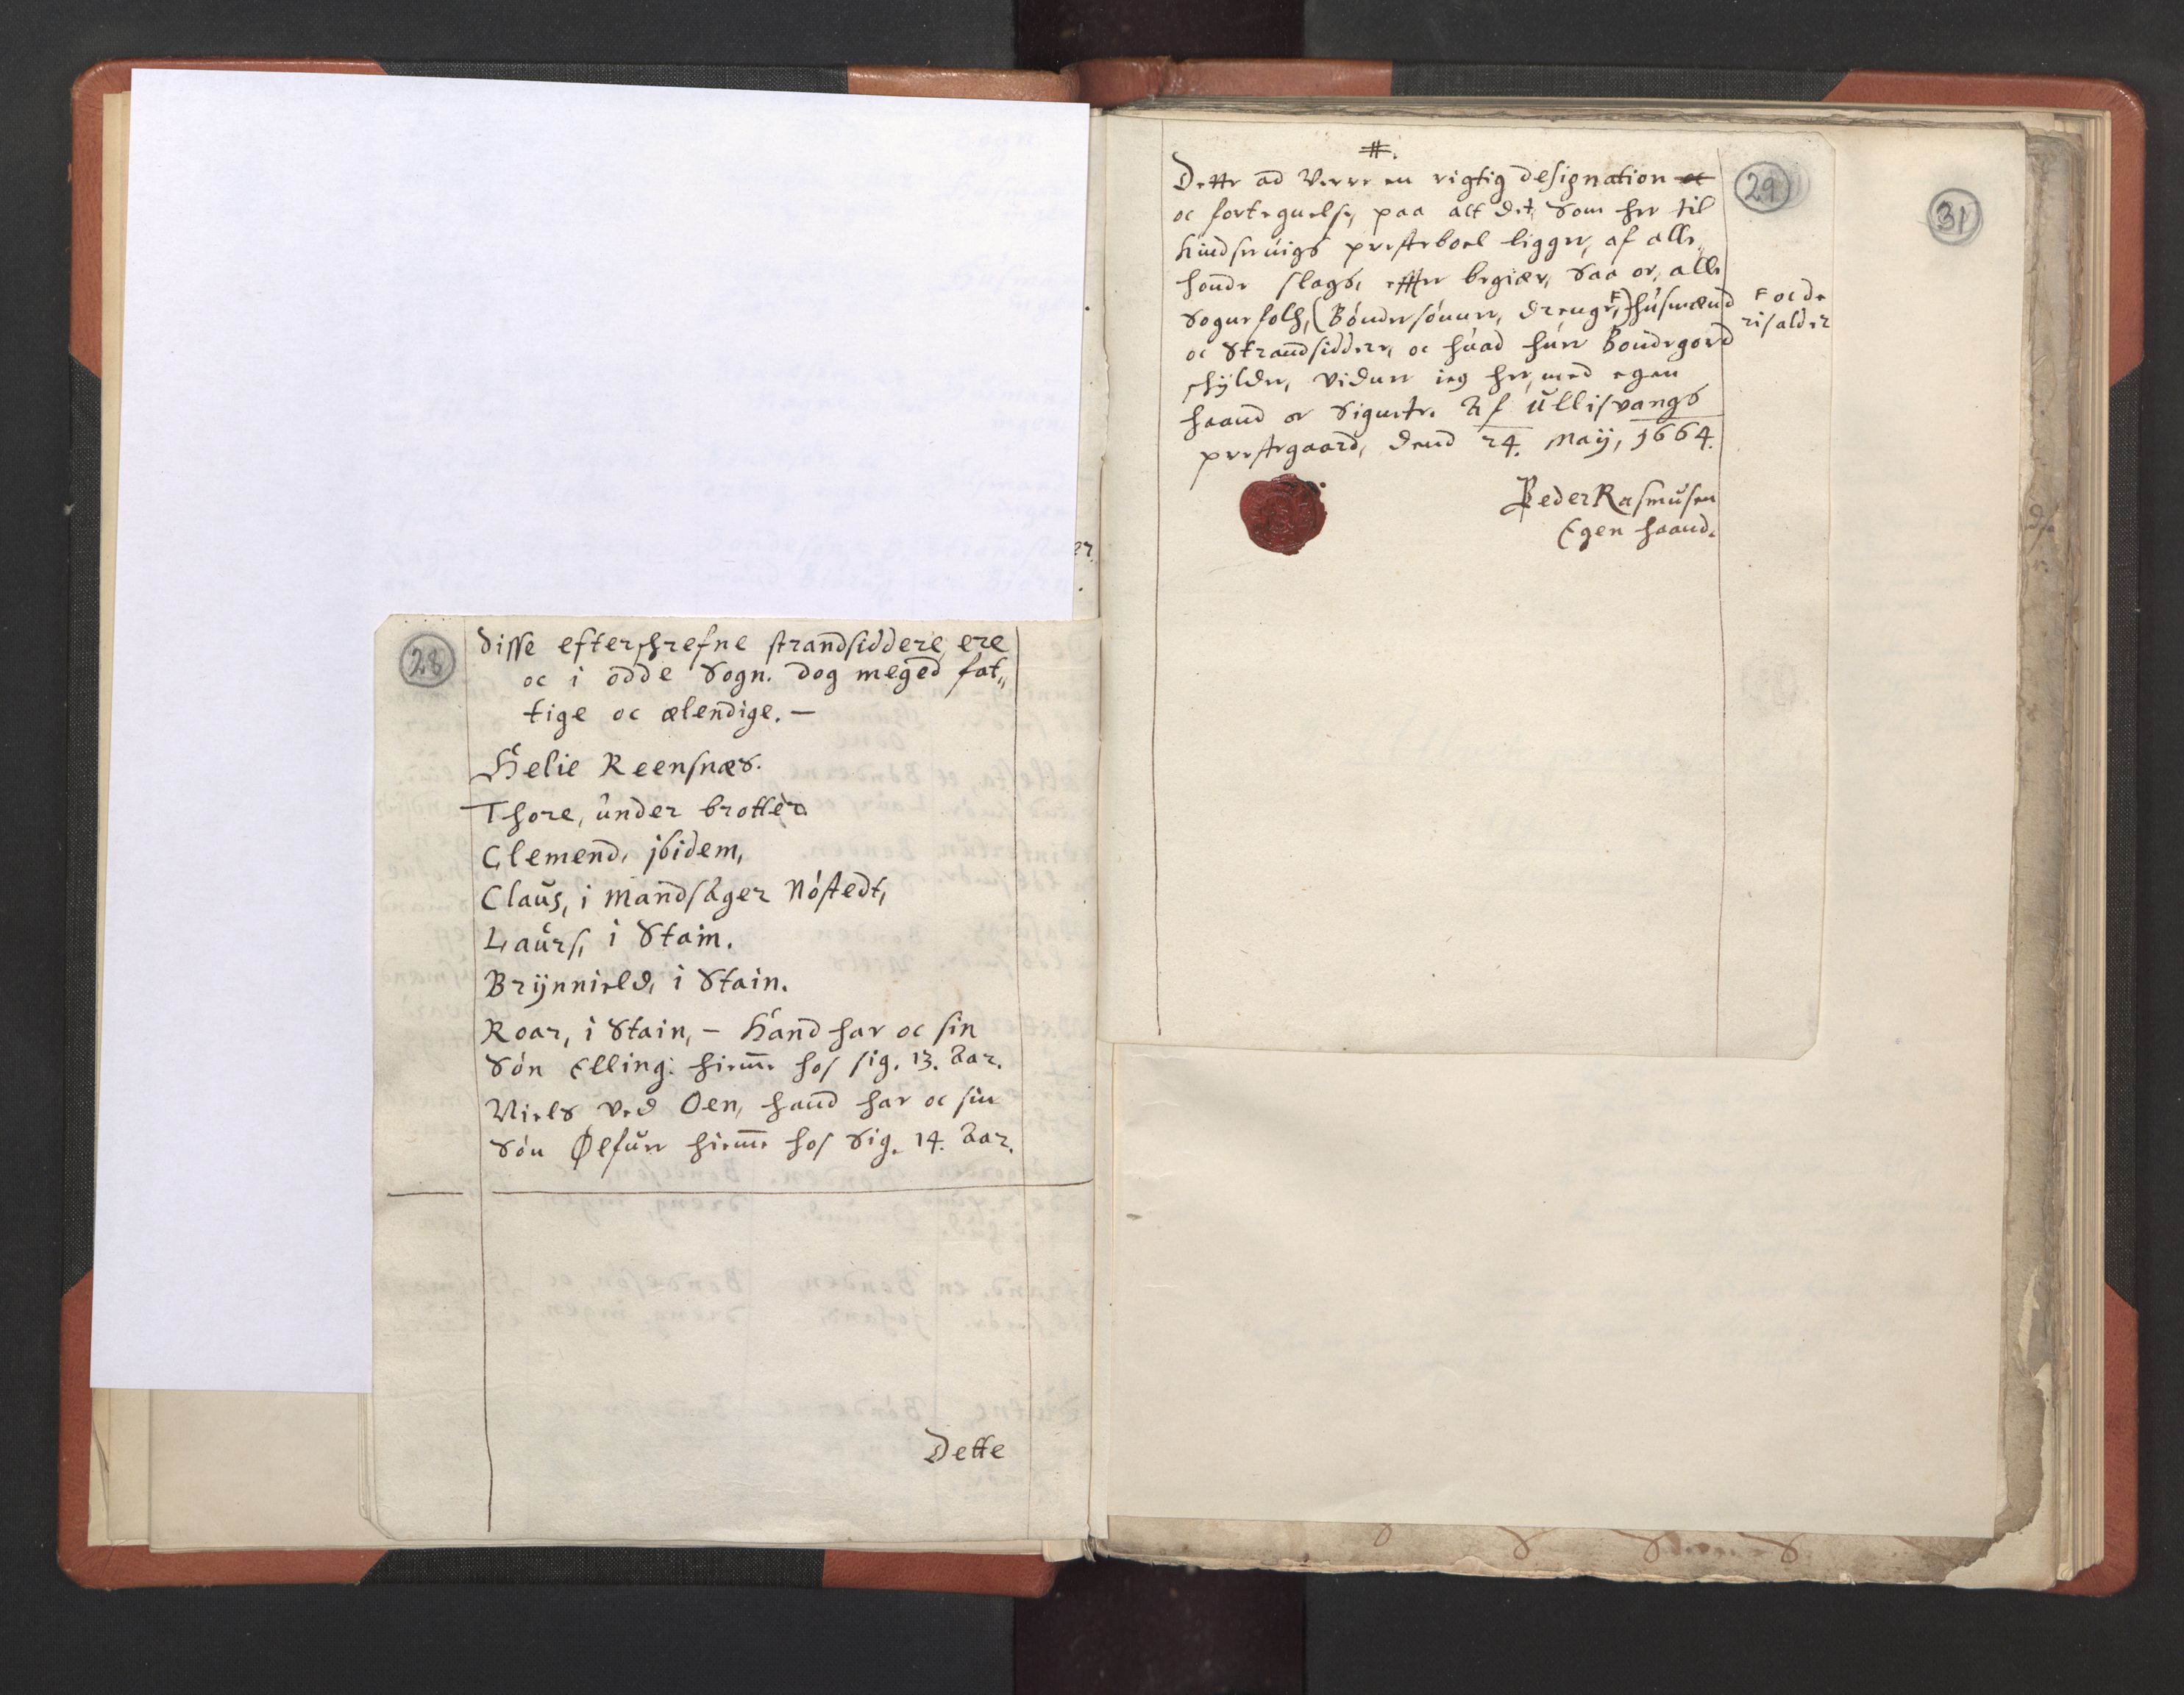 28
Disse efterschrefne strandsiddere ere
oc i odde Sogn. dog meged fat„
tige oc ælendige. —
Helie Reensnæs.
Thore, under brotter.
Clemend, jbidem,
Claus, i Mandsager Nóstedt,
Laurs, i Stain.
Brÿnnield, i Stain.
Roar, i Stain, – Hand har oc sin
Són Elling: hiemme hos sig. 13. Aar.
Niels ved Oen, hand har oc sin
Són Ølfuer hiemme hos Sig. 14. Aar.
Dette
#.
29
31
Dette ad Verre en rigtig designation oc
oc fortegnelse, paa alt det, Som her til
Kindseruigs presteboel ligger, af alle,
honde slags, effter begiær, Saa oc, alle
Sognefolk, (Bóndersónner, drenge,F) húsmænd
F oc de
ris alder
oc Strandsiddere, oc húad húer Bondegord
schÿlder, vidner ieg her, med egen
haand oc Signete. Af Ullisvangs
prestegaard, dend 24. Maÿ, 1664.
Peder Rasmúsen
Egen haand.